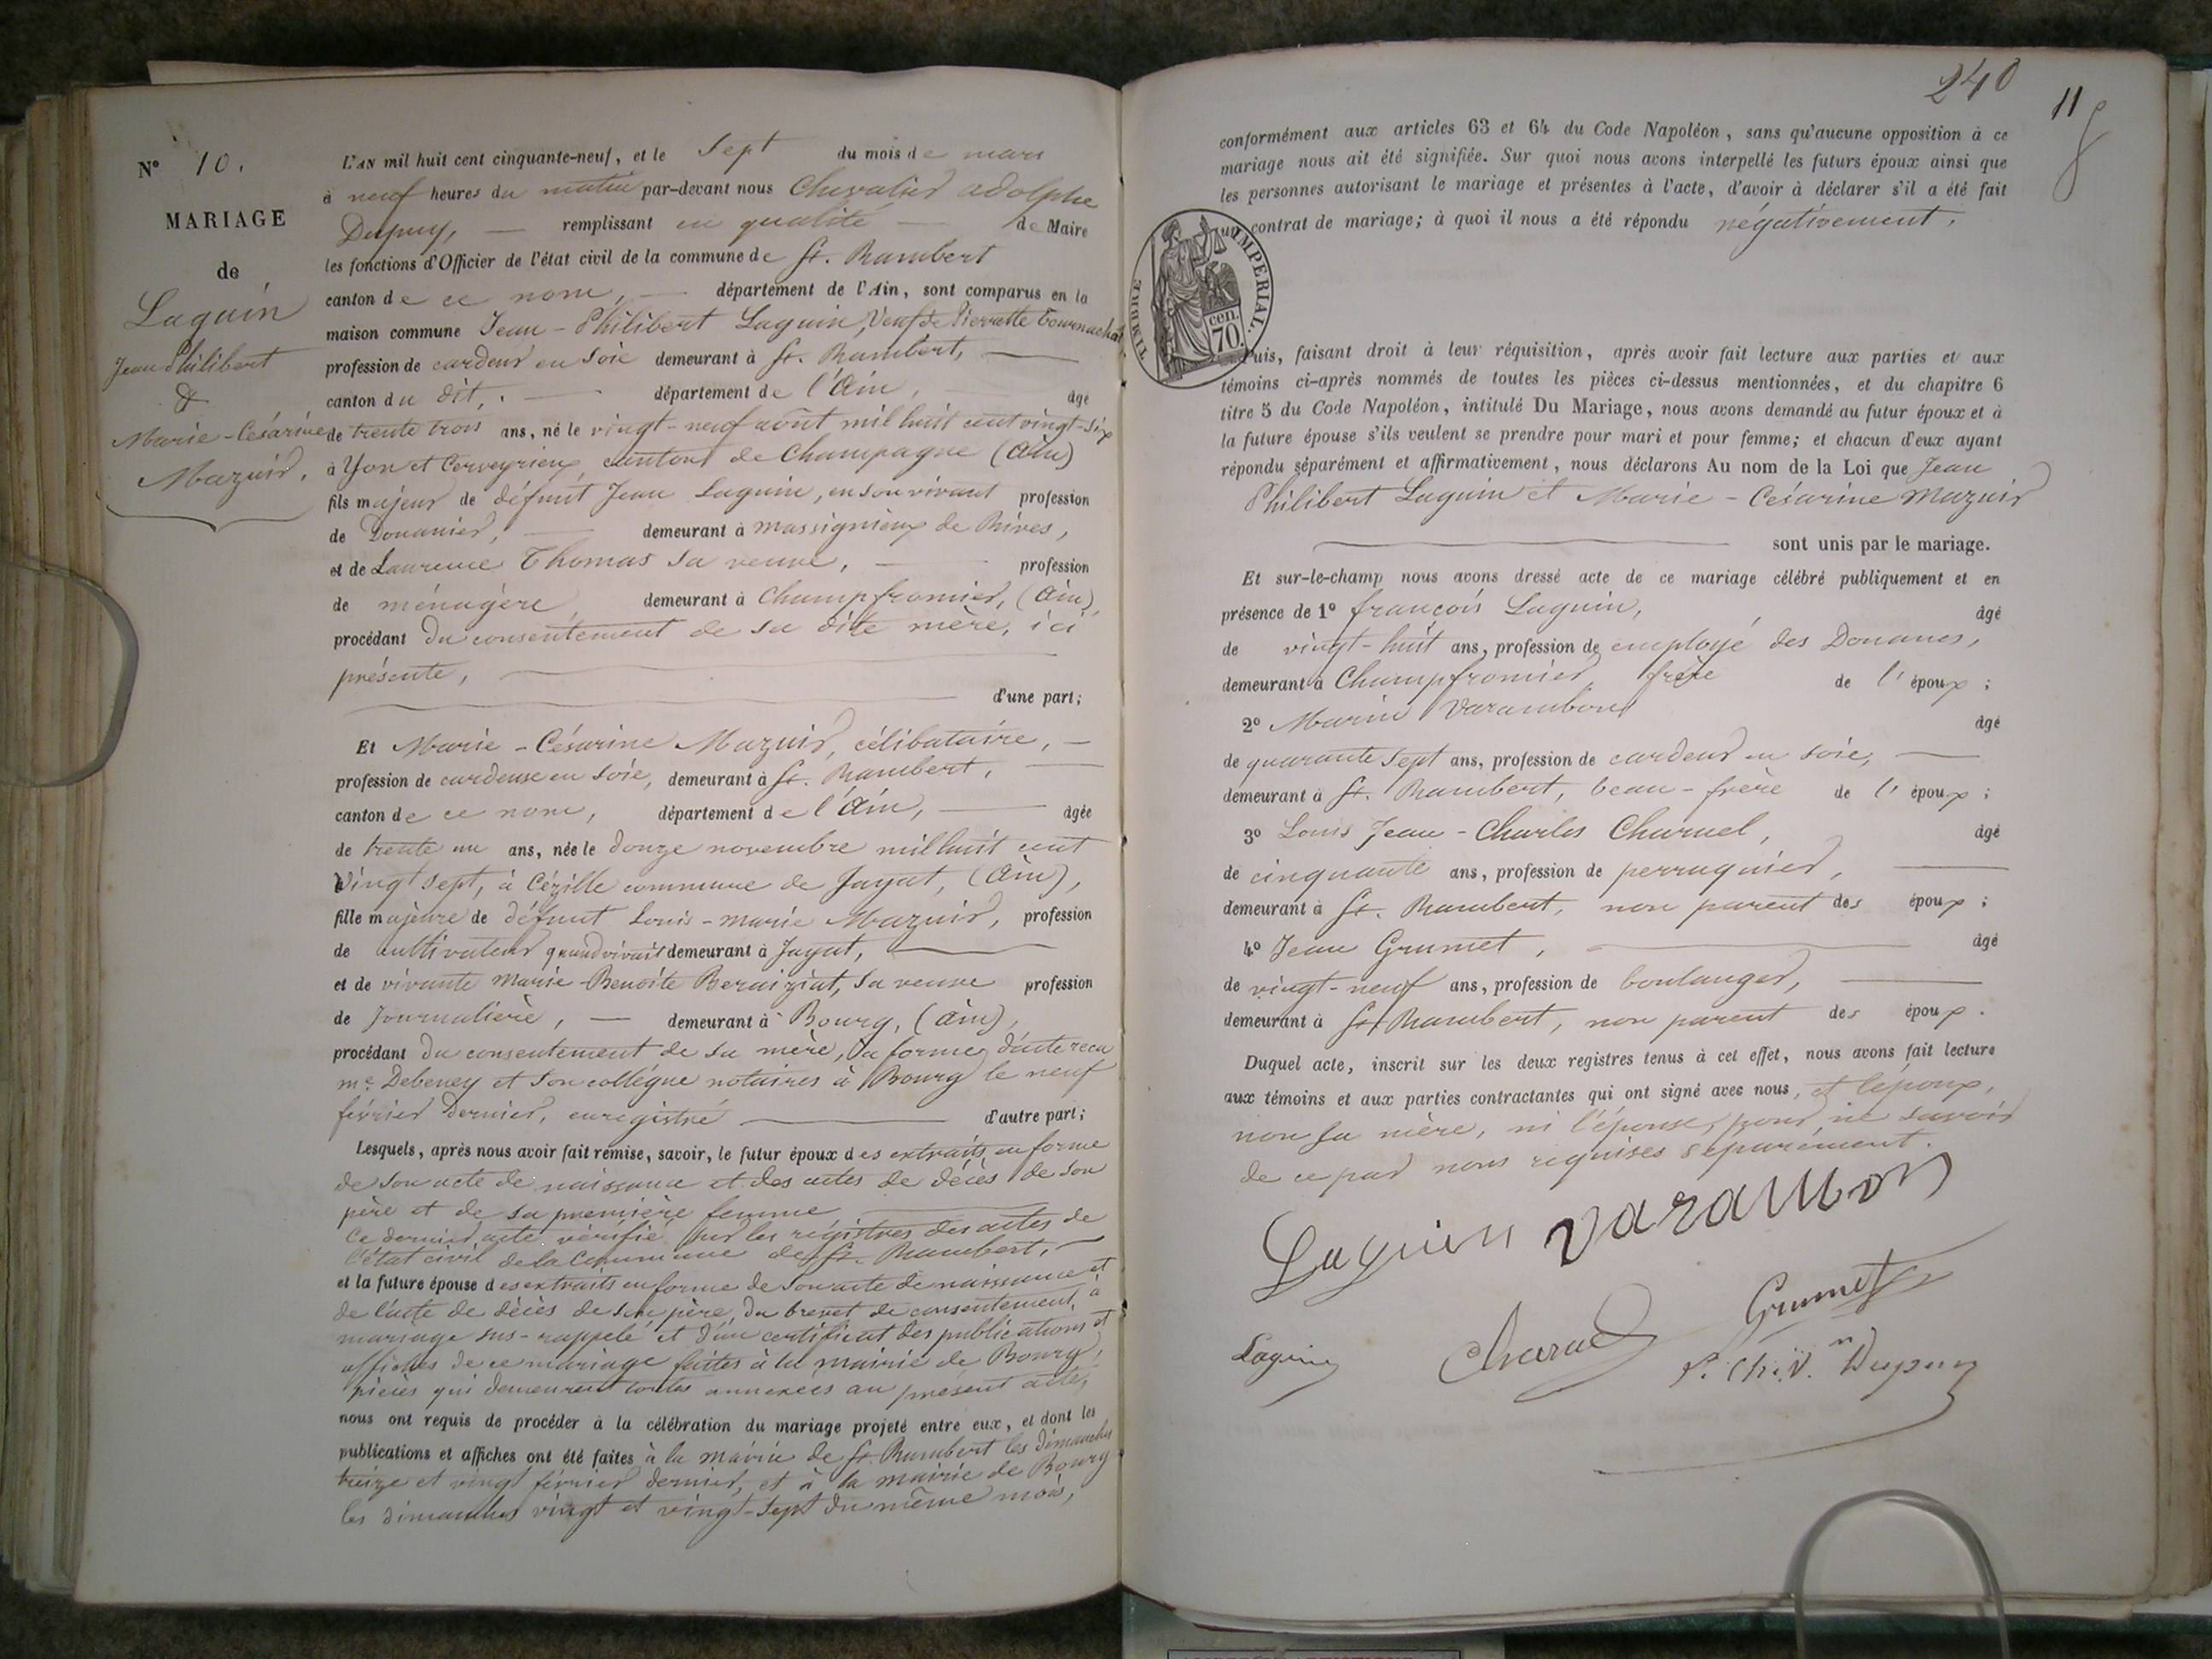 N° 10.
MARIAGE
de
Laguin
Jean Philibert
&
Marie-Césarine
Mazuir.
L'AN mil huit cent cinquante-neuf, et le Sept du mois de mars
à neuf heures du matin par-devant nous Chevalier adolphe
Dupuy, — remplissant en qualité — de Maire
les fonctions d'Officier de l'état civil de la commune de St. Rambert
canton de ce nom, — département de l'Ain, sont comparus en la
maison commune Jean-Philibert Laguin, Veuf de Pierrette Tournachat
profession de cardeur en Soie demeurant à St. Rambert, —
canton du dit, . — département de l'Ain, agé
de trente trois ans, né le vingt-neuf août mil huit cent vingt-six
à Yon et Cerveyrieux canton de Champagne (Ain)
fils majeur de défunt Jean Laguin, en son vivant profession
de Douanier, — demeurant à massignieux de Rives,
et de Laurence Thomas sa veuve, — profession
de ménagère, demeurant à Champfromier, (Ain),
procédant du consentement de sa dite mère, ici
présente, —
d'une part;
Et Marie-Césarine Mazuir, célibataire, —
profession de cardeuse en Soie, demeurant à St. Rambert, —
canton de ce nom, département de l'Ain, — agée
de trente un ans, née le douze novembre mil huit cent
vingt sept, à Cézille commune de Jayat, (Ain),
fille majeure de défunt Louis-marie Mazuir, profession
de cultivateur quand vivait demeurant à Jayat, —
et de vivante Marie-Benoite Beraiziat, sa veuve profession
de Journalière, — demeurant à Bourg, (Ain),
procédant du consentement de sa mère, en forme d'acte reçu
me. Debeney et son collégue notaires à Bourg le neuf
février dernier, enregistré — d'autre part;
Lesquels, après nous avoir fait remise, savoir, le futur époux des extraits en forme
de son acte de naissance et des actes de décès de son
père et de sa première femme —
ce dernier acte vérifié sur les régistres des actes de
l'état civil de la Commune de St. Rambert, —
et la future épouse des extraits en forme de son acte de naissance et
de l'acte de décès de son père, du brevet de consentement à
mariage sus-rappelé et d'un certificat des publications et
affiches de ce mariage faites à la mairie de Bourg,
pièces qui demeurent toutes annexées au présent acte,
nous ont requis de procéder à la célébration du mariage projeté entre eux, et dont les
publications et affiches ont été faites à la mairie de St. Rambert les dimanches
treize et vingt février dernier, et à la mairie de Bourg
les dimanches vingt et vingt-sept du même mois,
240
11
conformément aux articles 63 et 64 du Code Napoléon, sans qu'aucune opposition à ce
mariage nous ait été signifiée. Sur quoi nous avons interpellé les futurs époux ainsi que
les personnes autorisant le mariage et présentes à l'acte, d'avoir à déclarer s'il a été fait
un contrat de mariage; à quoi il nous a été répondu négativement.
TIMBRE IMPERIAL.
cen.
70.
Puis, faisant droit à leur réquisition, après avoir fait lecture aux parties et aux
témoins ci-après nommés de toutes les pièces ci-dessus mentionnées, et du chapitre 6
titre 5 du Code Napoléon, intitulé Du Mariage, nous avons demandé au futur époux et à
la future épouse s'ils veulent se prendre pour mari et pour femme; et chacun d'eux ayant
répondu séparément et affirmativement, nous déclarons Au nom de la Loi que Jean
Philibert Laguin et Marie-Césarine Mazuir
— sont unis par le mariage.
Et sur-le-champ nous avons dressé acte de ce mariage célébré publiquement et en
présence de 1° françois Laguin, agé
de vingt-huit ans, profession de employé des Douanes,
demeurant à Champfromier, frère de l'époux;
2° Marin Varambon agé
de quarante sept ans, profession de cardeur en soie, —
demeurant à St. Rambert, beau-frère de l'époux;
3° Louis Jean-Charles Charuel, agé
de cinquante ans, profession de perruquier, —
demeurant à St. Rambert, non parent des époux;
4° Jean Grumet, — agé
de vingt-neuf ans, profession de boulanger, —
demeurant à St. Rambert, non parent des époux.
Duquel acte, inscrit sur les deux registres tenus à cet effet, nous avons fait lecture
aux témoins et aux parties contractantes qui ont signé avec nous, et l'époux,
non sa mère, ni l'épouse, pour ne savoir
de ce par nous requises séparément.
Laguin varambon
Grumet
Laguin Charuel P. Ch. V. Dupuy